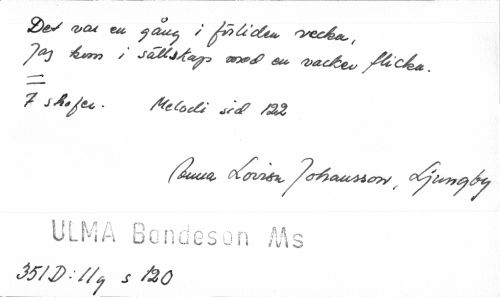 Det var en gång i förliden vecka,
Jag kom i sällskap med en vacker flicka.
=
7 strofer. Melodi sid 122
Anna Lovisa Johansson, Ljungby
ULMA Bondeson Ms
351D:11q s 120